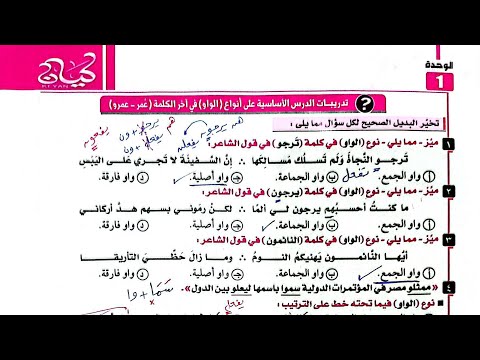 الوحدة
1
كيان
KIYAN
تدريبات الدرس الأساسية على أنواع (الواو) في آخر الكلمة (عُمر - عمرو)
؟
تخيَّر البديل الصحيح لكل سؤال مما يلى:
هم يرجون
يفعلون
هم
١ ميّز - مما يلي - نوع (الواو) في كلمة (ترجو) في قول الشاعر:
تَرجو النَّجاةَ وَلَم تَسلُك مَسالِكَها ∴ إِنَّ السَّفينَةَ لا تَجري عَلى اليَبَسِ
تفعل
أ واو الجمع. ب واو الجماعة. ج واو أصلية. د واو فارقة.
٢ ميّز - مما يلي - نوع (الواو) في كلمة (يرجون) في قول الشاعر:
ما كنتُ أحسبُهم يرجون لي ألمًا ∴ لكنْ رمَوني بسهم هدَّ أركاني
أ واو الجمع. ب واو الجماعة. ج واو أصلية. د واو فارقة.
٣ ميّز - مما يلي - نوع (الواو) في كلمة (النائمون) في قول الشاعر:
أيُّها النَّائمون يَهنيكمُ النومُ ∴ وما زالَ حظّي التأريقا
أ واو الجمع. ب واو الجماعة. ج واو أصلية. د واو فارقة.
سَمَا + وا
٤ «ممثلو مصر في المؤتمرات الدولية سموا باسمها ليعلو بين الدول».
نوع (الواو) فيما تحته خط على الترتيب: